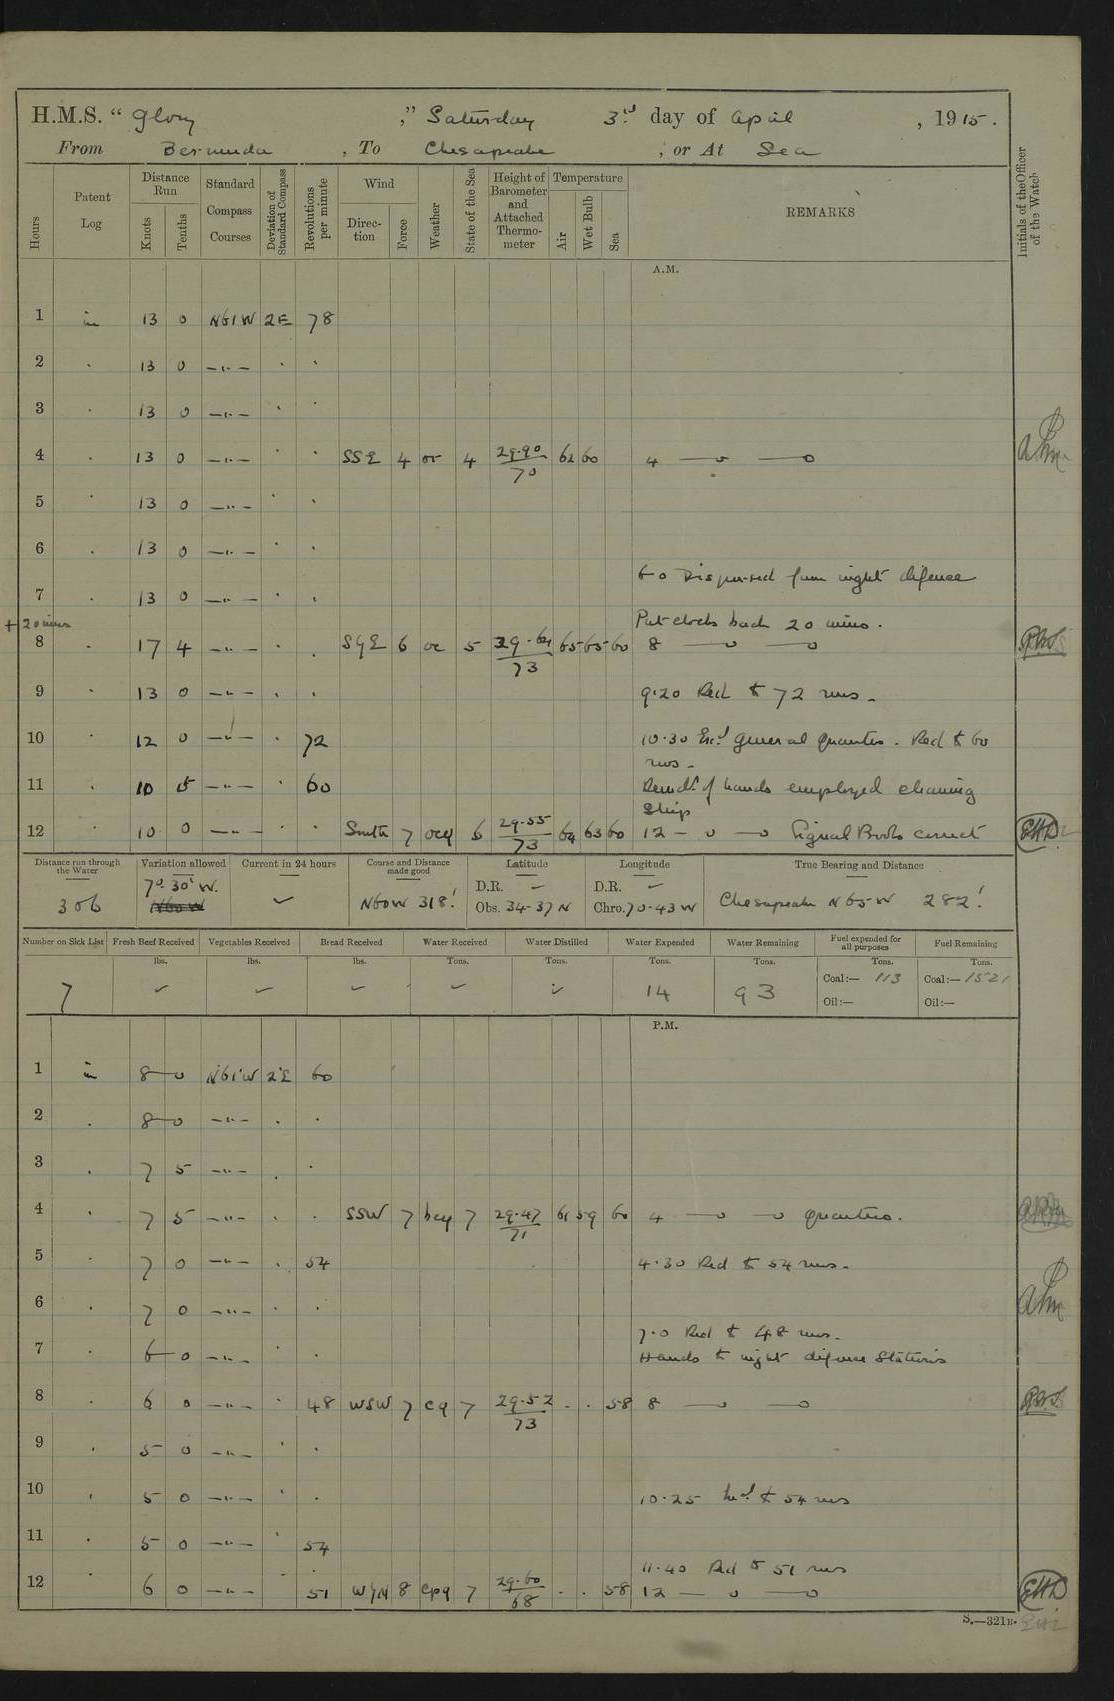 H.M.S. “ Glory ,” Saturday 3rd day of April , 1915.
From Bermuda , To Chesapeake , or At Sea
Hours
Patent Log
Distance Run
Knots
Tenths
Standard Compass Courses
Deviation of Standard Compass
Revolutions per minute
Wind
Direc-tion
Force
Weather
State of the Sea
Height of Barometer and Attached Thermo-meter
Temperature
Air
Wet Bulb
Sea
REMARKS
Initials of the Officer of the Watch
A.M.
1 in 13 0 N61W 2E 78
2 . 13 0 —"— . .
3 . 13 0 —"— . .
4 . 13 0 —"— . . SSE 4 or 4 29.90/70 62 60 4 —o —o
5 . 13 0 —"— . .
6 . 13 0 —"— . .
6-0 Dispersed from night defence
7 . 13 0 —"— . .
+20 mins Put clocks back 20 mins.
8 . 17 4 —"— . . SyE 6 oc 5 29.64/73 65 65 60 8 —o —o
9 . 13 0 —"— . . 9.20 Red to 72 revs.
10 . 12 0 —"— . 72 10.30 Exd general quarters. Red to 60
revs.
11 . 10 5 —"— . 60 Remdr of hands employed cleaning
Ship
12 . 10 0 —"— . . South 7 ocq 6 29.55/73 64 63 60 12 — o —o Signal Books correct EHD
Distance run through the Water 306
Variation allowed 7° 30' W.
Current in 24 hours ✓
Course and Distance made good N60W 318'
Latitude
D.R. ✓
Obs. 34-37 N
Longitude
D.R. ✓
Chro. 70-43 W
True Bearing and Distance
Chesapeake N65W 282'
Number on Sick List 7
Fresh Beef Received lbs. ✓
Vegetables Received lbs. ✓
Bread Received lbs. ✓
Water Received Tons. ✓
Water Distilled Tons. ✓
Water Expended Tons. 14
Water Remaining Tons. 93
Fuel expended for all purposes Tons.
Coal:— 113
Oil:—
Fuel Remaining Tons.
Coal:— 1521
Oil:—
P.M.
1 in 8 0 N61W 2E 60
2 . 8 0 —"— . .
3 . 7 5 —"— . .
4 . 7 5 —"— . . SSW 7 bcq 7 29.47/71 61 59 60 4 —o —o Quarters.
5 . 7 0 —"— . 54 4.30 Red to 54 revs.
6 . 7 0 —"— . .
7.0 Red to 48 revs.
7 . 6 0 —"— . . Hands to night defence Stations
8 . 6 0 —"— . 48 WSW 7 cq 7 29.52/73 . . 58 8 —o o
9 . 5 0 —"— . .
10 . 5 0 —"— . . 10.25 Incd to 54 revs
11 . 5 0 —"— . 54
11.40 Red to 51 revs
12 . 6 0 —"— . 51 WyN 8 cpq 7 29.60/68 . . 58 12 — o —o EHD
S.—321B.